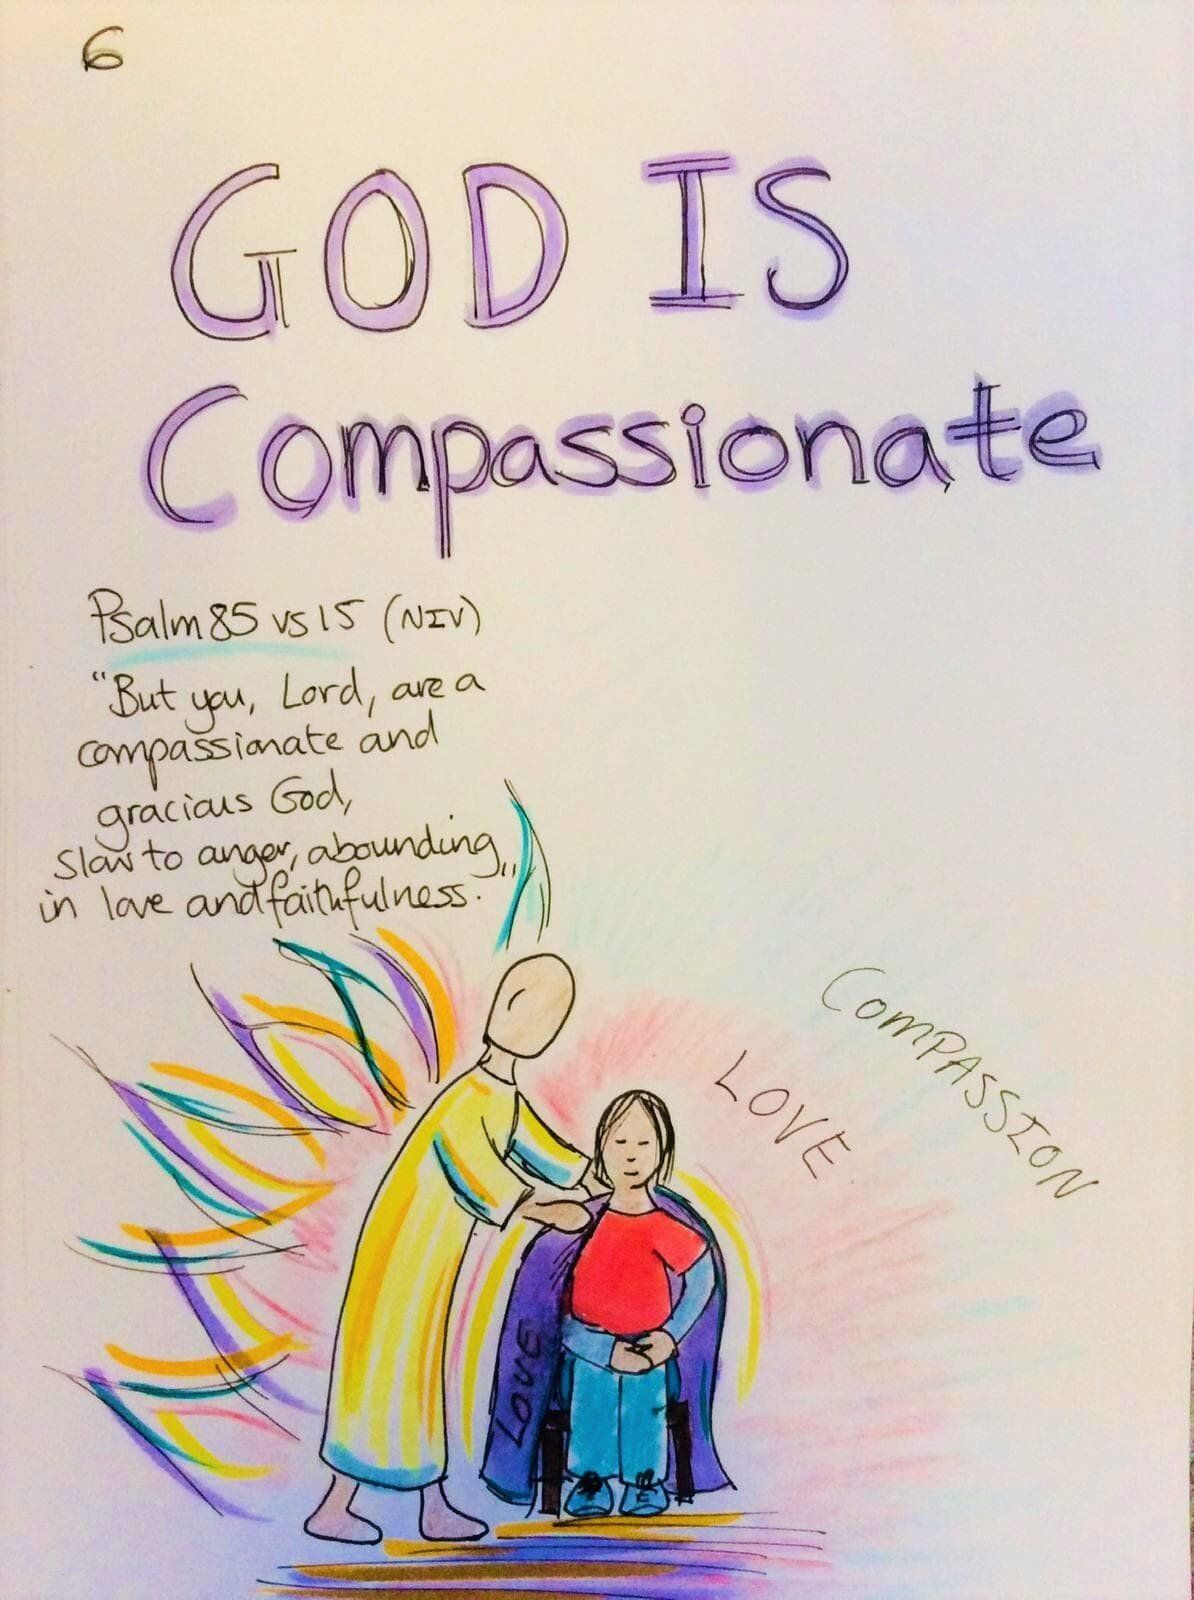 6
GOD IS
Compassionate
Psalm 85 vs 15 (NIV)
"But you, Lord, are a
compassionate and
gracious God,
slow to anger, abounding
in love and faithfulness."
COMPASSION
LOVE
LOVE